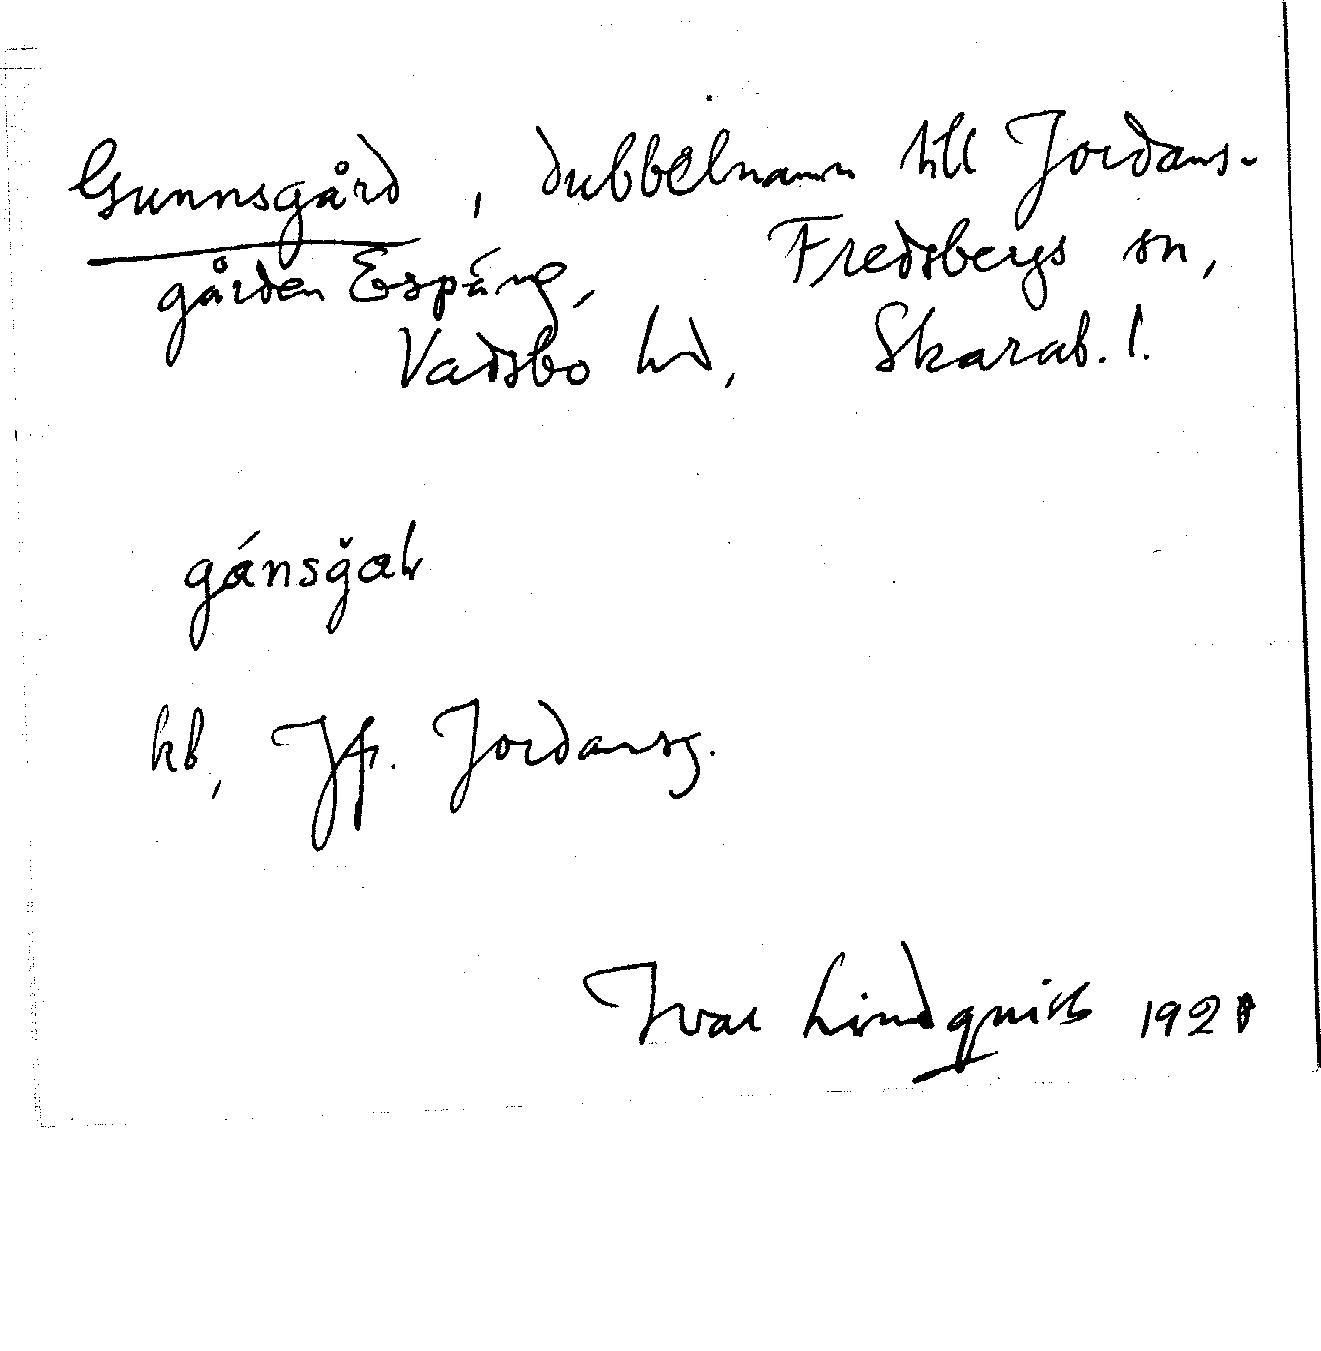 Gunnsgård, dubbelnamn till Jordans-
gården Espäng, Fredsbergs sn,
Vadsbo hd, Skarab. l.
kb, Jfr. Jordansg.
Ivar Lindquist 192